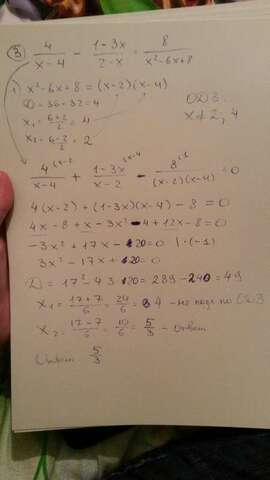 ③ 4/(x-4) - (1-3x)/(2-x) = 8/(x²-6x+8)
1) x²-6x+8 = (x-2)(x-4)
D = 36-32=4
x₁ = (6+2)/2 = 4
x₂ = (6-2)/2 = 2
ОДЗ:
x≠2, 4
4^(x-2)/(x-4) + (1-3x)^(x-4)/(x-2) - 8^(1)/((x-2)(x-4)) = 0
4(x-2) + (1-3x)(x-4) - 8 = 0
4x-8+x-3x²-4+12x-8=0
-3x²+17x-20=0 | ·(-1)
3x²-17x+20=0
D = 17²-4·3·20 = 289-240=49
x₁ = (17+7)/6 = 24/6 = 4 - не подх по ОДЗ
x₂ = (17-7)/6 = 10/6 = 5/3 - ответ
Ответ: 5/3